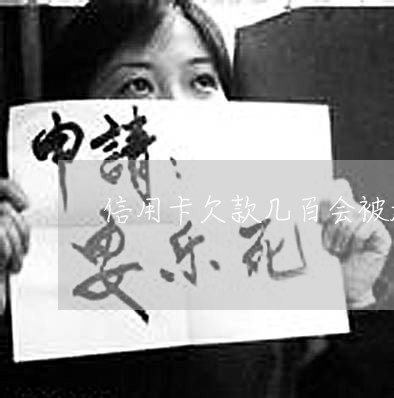 申請：
信用卡欠款几百会被
安乐死